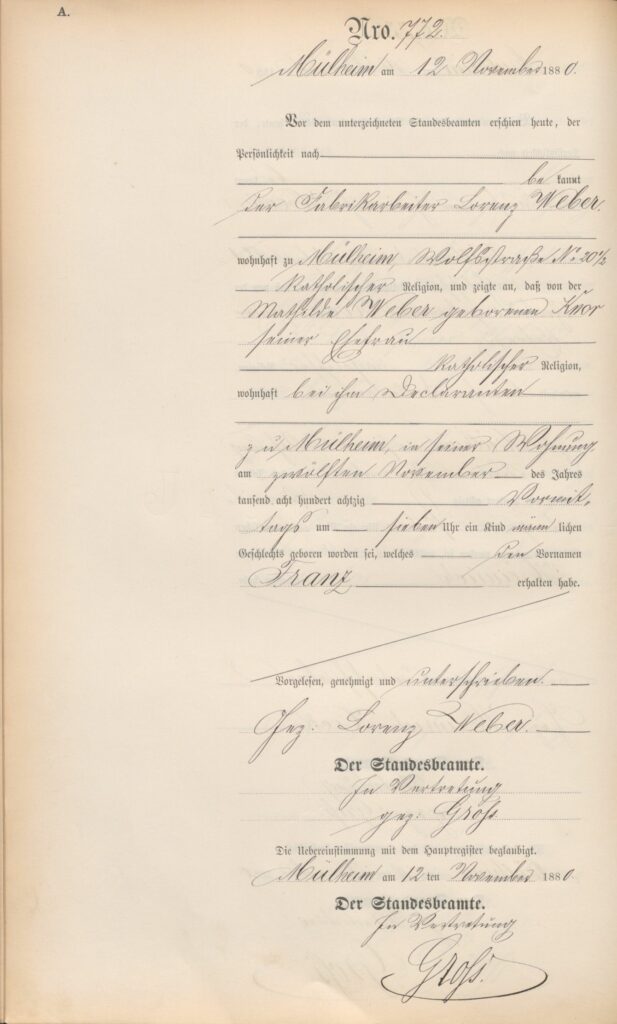 A.
Nro. 772.
Mülheim am 12 November 1880.
Vor dem unterzeichneten Standesbeamten erschien heute, der
Persönlichkeit nach
be kannt
der Fabrikarbeiter Lorenz Weber,
wohnhaft zu Mülheim, Wolfsstraße No 20½
katholischer Religion, und zeigte an, daß von der
Mathilde Weber geborenen Knor
seiner Ehefrau
katholischer Religion,
wohnhaft bei ihm Declaranten
zu Mülheim, in seiner Wohnung
am zwölften November des Jahres
tausend acht hundert achtzig Vormit-
tags um sieben Uhr ein Kind männ lichen
Geschlechts geboren worden sei, welches den Vornamen
Franz erhalten habe.
Vorgelesen, genehmigt und unterschrieben.
Gez: Lorenz Weber.
Der Standesbeamte.
In Vertretung
gez: Groß.
Die Uebereinstimmung mit dem Hauptregister beglaubigt.
Mülheim am 12 ten November 1880.
Der Standesbeamte.
In Vertretung
Groß.